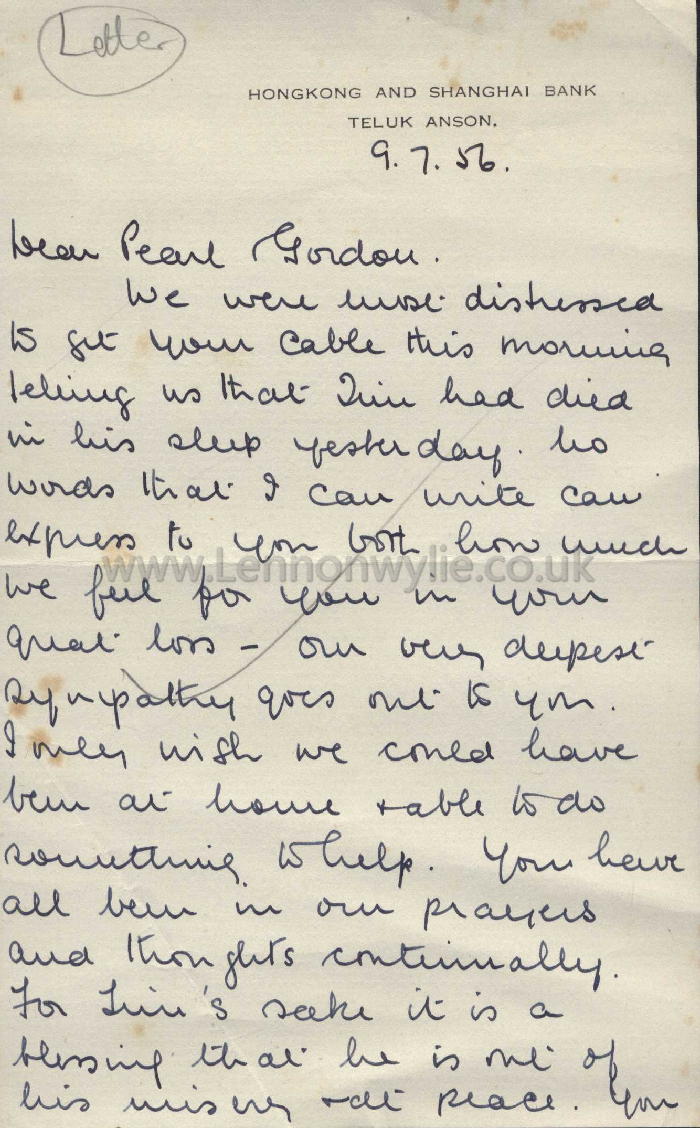 Letter
HONGKONG AND SHANGHAI BANK
TELUK ANSON.
9.7.56.
Dear Pearl Gordon.
We were most distressed
to get your cable this morning
telling us that Jim had died
in his sleep yesterday. No
words that I can write can
express to you both how much
we feel for you in your
great loss – our very deepest
sympathy goes out to you.
I only wish we could have
been at home + able to do
something to help. You have
all been in our prayers
and thoughts continually.
For Jim's sake it is a
blessing that he is out of
his misery + at peace. You
www.Lennonwylie.co.uk